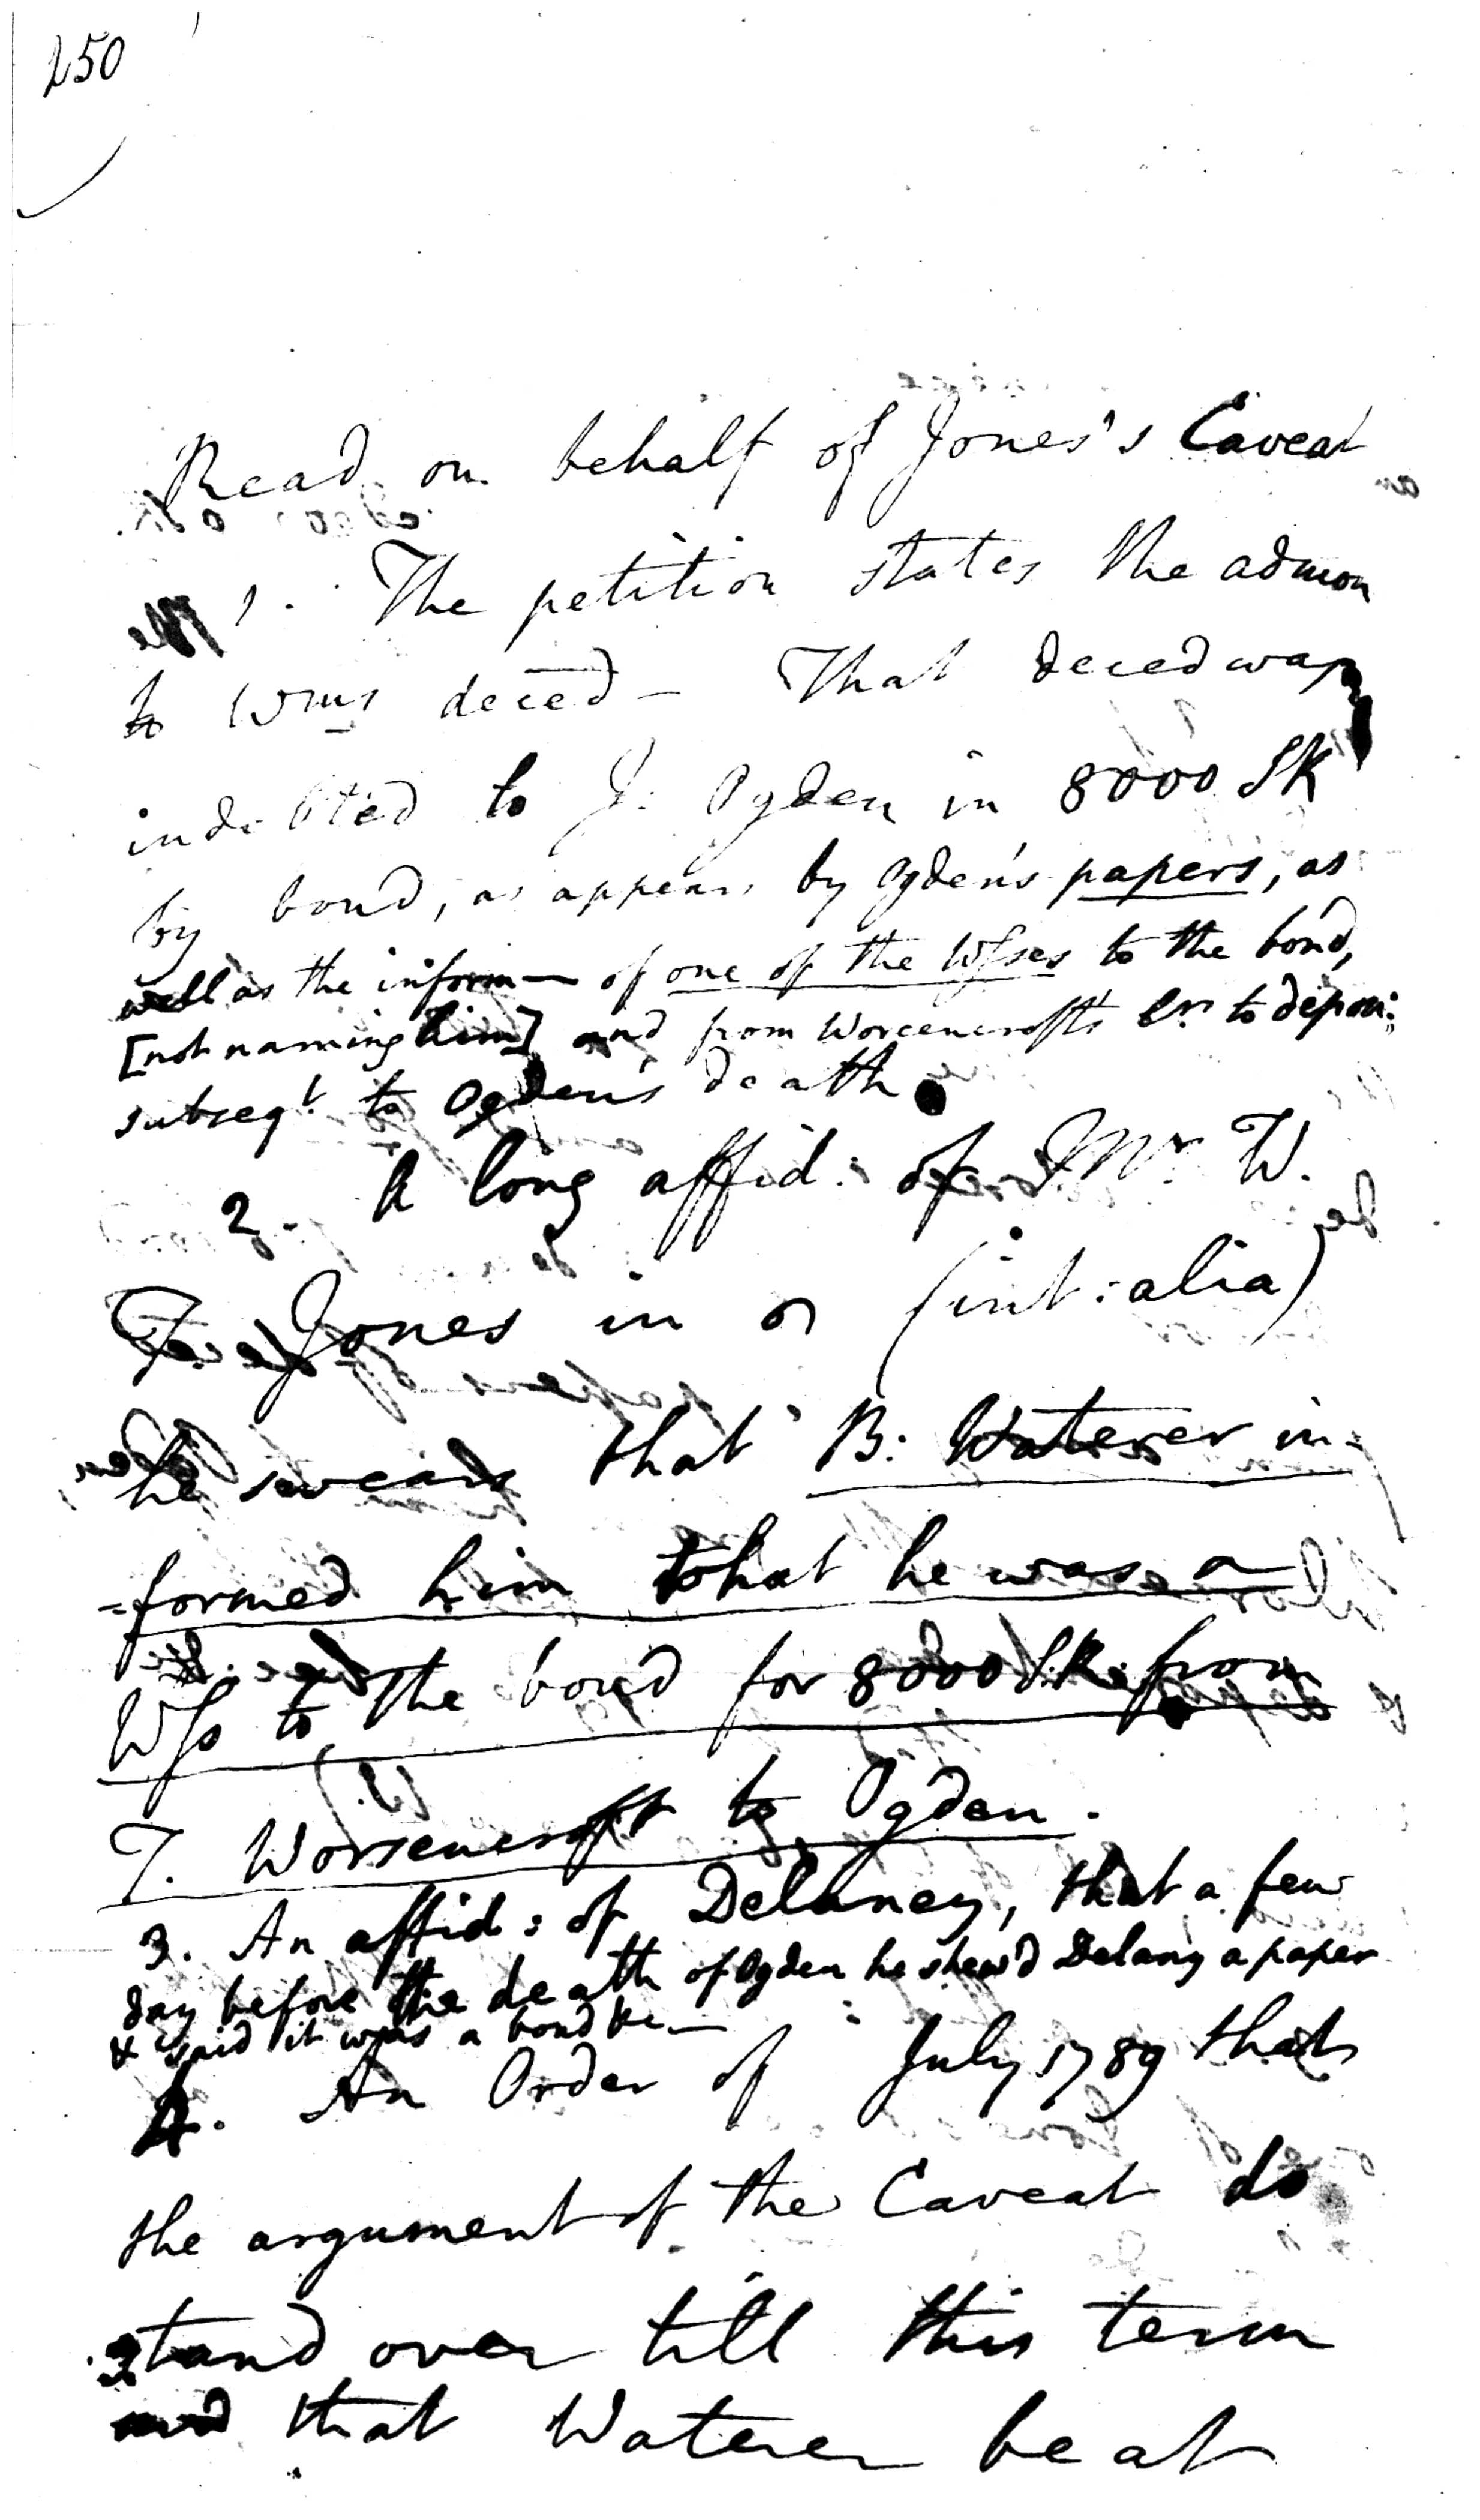 250
Read on behalf of Jones's Caveat
1. The petition states the admon
to Wms deced — That deced was
indebted to J. Ogden in 8000 SR
by bond, as appears by Ogden's papers, as
well as the inform— of one of the Wsses to the bond,
[not naming him] and from Worcencrofts Er. to
subseqt. to Ogden's death
2. A long affid: of W.
Jones in (int: alia)
he swears that B. Waterer in=
=formed him that he was a
Wss to the bond for 8000 SR from
T. Worsencroft to Ogden.
3. An affid: of Delaney, that a few
day before the death of Ogden he shew'd Delany a paper
& said it was a bond &c—
4. An Order of July 1789 that
the argument of the Caveat do
stand over till this term
and that Waterer be at